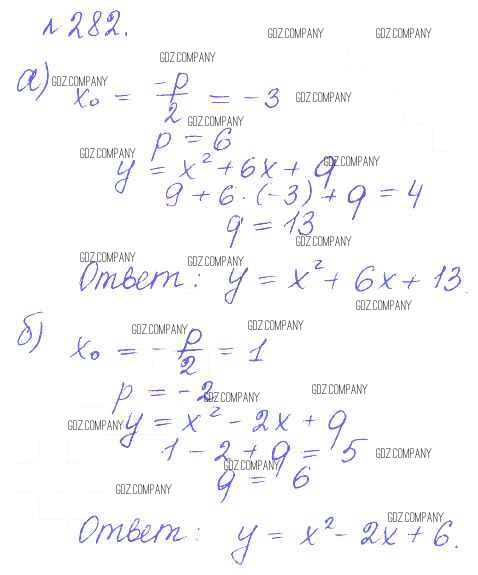 №282.
GDZ.COMPANY GDZ.COMPANY
GDZ.COMPANY
а) GDZ.COMPANY x₀ = -p/2 = -3 GDZ.COMPANY
GDZ.COMPANY
p = 6
GDZ.COMPANY GDZ.COMPANY
y = x² + 6x + q
9 + 6·(-3) + q = 4
q = 13
GDZ.COMPANY
GDZ.COMPANY GDZ.COMPANY
Ответ: y = x² + 6x + 13.
GDZ.COMPANY
GDZ.COMPANY GDZ.COMPANY
б) x₀ = -p/2 = 1
p = -2 GDZ.COMPANY GDZ.COMPANY
GDZ.COMPANY y = x² - 2x + q
1 - 2 + q = 5 GDZ.COMPANY
GDZ.COMPANY
q = 6
GDZ.COMPANY
GDZ.COMPANY
Ответ: y = x² - 2x + 6.
GDZ.COMPANY